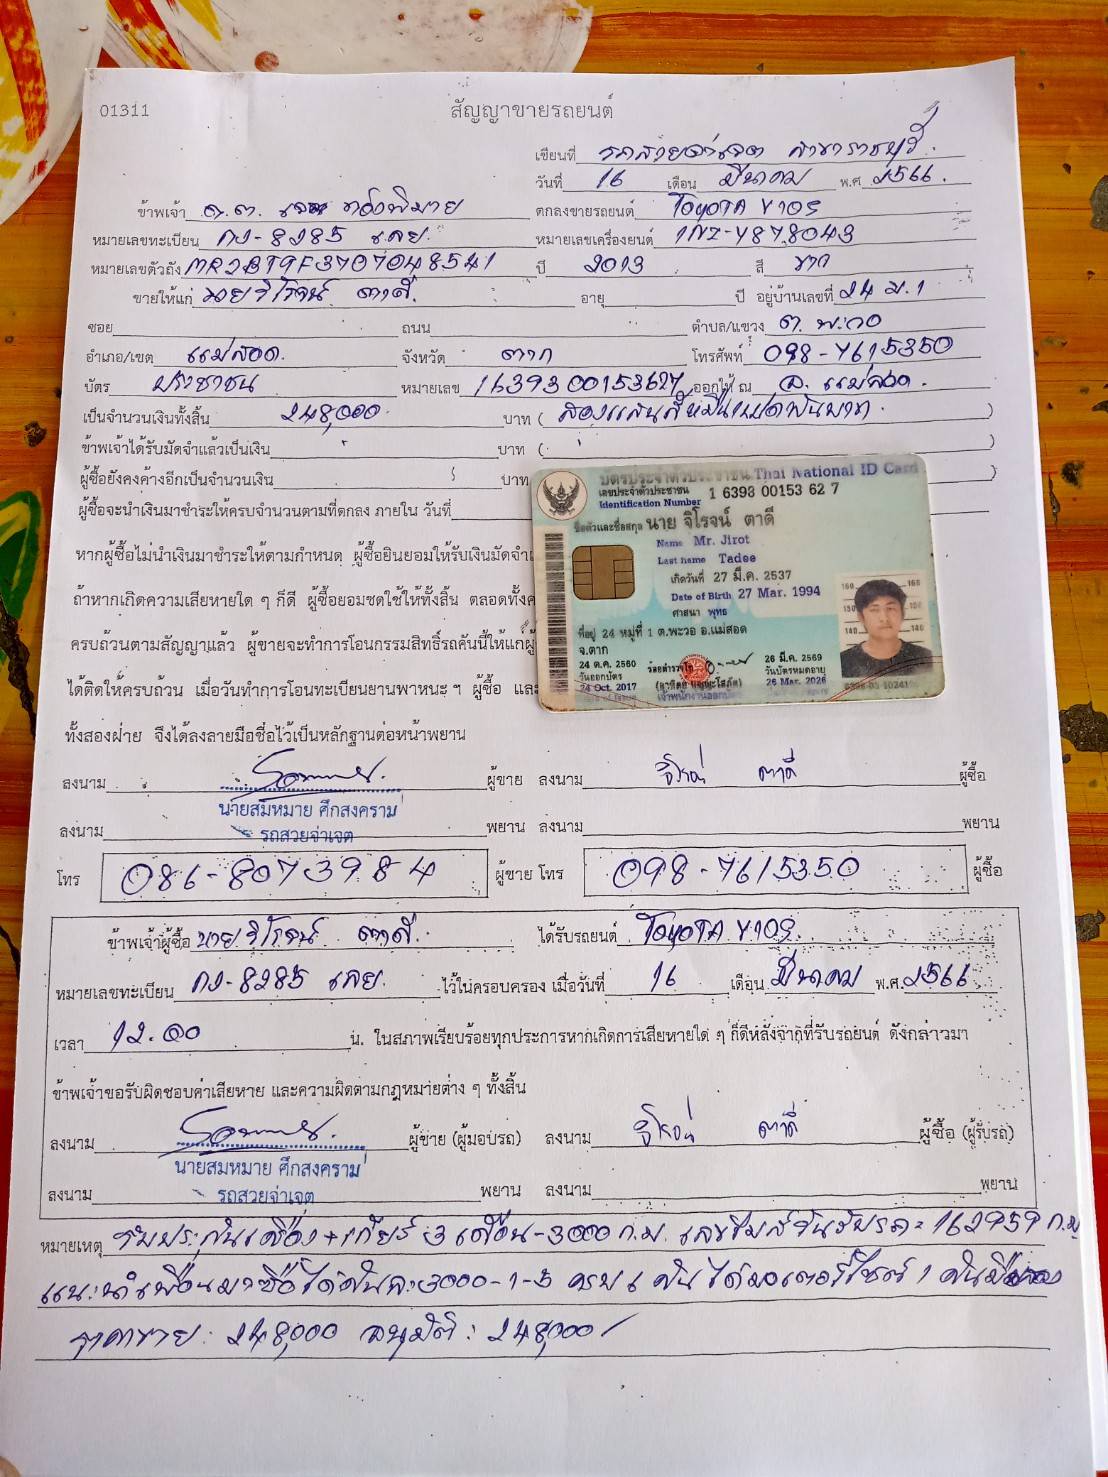 01311 สัญญาขายรถยนต์
เขียนที่ รถสวยจ่าเจต สาขาราชบุรี
วันที่ 16 เดือน มีนาคม พ.ศ 2566.
ข้าพเจ้า ด.ต. ทองพิมาย ตกลงขายรถยนต์ TOYOTA VIOS
หมายเลขทะเบียน กง-8285 เลย. หมายเลขเครื่องยนต์ 1NZ-Y878043
หมายเลขตัวถัง MR2BT9F3707048541 ปี 2013 สี
ขายให้แก่ นายจิโรจน์ ตาดี. อายุ ปี อยู่บ้านเลขที่ 24 ม.1
ซอย ถนน ตำบล/แขวง ต. พะวอ
อำเภอ/เขต แม่สอด. จังหวัด ตาก โทรศัพท์ 098-7615350
บัตร ประชาชน หมายเลข 1639300153627 ออกให้ ณ อ. แม่สอด.
เป็นจำนวนเงินทั้งสิ้น 248,000 บาท ( สองแสนสี่หมื่นแปดพันบาท. )
ข้าพเจ้าได้รับมัดจำแล้วเป็นเงิน บาท ( )
ผู้ซื้อยังคงค้างอีกเป็นจำนวนเงิน บาท )
ผู้ซื้อจะนำเงินมาชำระให้ครบจำนวนตามที่ตกลง ภายใน วันที่
หากผู้ซื้อไม่นำเงินมาชำระให้ตามกำหนด ผู้ซื้อยินยอมให้รับเงินมัดจำ
ถ้าหากเกิดความเสียหายใด ๆ ก็ดี ผู้ซื้อยอมชดใช้ให้ทั้งสิ้น ตลอดทั้ง
ครบถ้วนตามสัญญาแล้ว ผู้ขายจะทำการโอนกรรมสิทธิ์รถคันนี้ให้แก่ผู้
ได้ติดให้ครบถ้วน เมื่อวันทำการโอนทะเบียนยานพาหนะ ฯ ผู้ซื้อ และ
ทั้งสองฝ่าย จึงได้ลงลายมือชื่อไว้เป็นหลักฐานต่อหน้าพยาน
บัตรประจำตัวประชาชน Thai National ID Card
เลขประจำตัวประชาชน 1 6393 00153 62 7
Identification Number
ชื่อตัวและชื่อสกุล นาย จิโรจน์ ตาดี
Name Mr. Jirot
Last name Tadee
เกิดวันที่ 27 มี.ค. 2537
Date of Birth 27 Mar. 1994
ศาสนา พุทธ
ที่อยู่ 24 หมู่ที่ 1 ต.พะวอ อ.แม่สอด
จ.ตาก
24 ต.ค. 2560
วันออกบัตร
24 Oct. 2017
Date of Issue
เจ้าพนักงานออกบัตร
26 มี.ค. 2569
วันบัตรหมดอายุ
26 Mar. 2026
160 160
150
140 140
ลงนาม ผู้ขาย ลงนาม จิโรจน์ ตาดี ผู้ซื้อ
นายสมหมาย ศึกสงคราม
ลงนาม รถสวยจ่าเจต พยาน ลงนาม พยาน
โทร 086-8073984 ผู้ขาย โทร 098-7615350 ผู้ซื้อ
ข้าพเจ้าผู้ซื้อ นาย.จิโรจน์ ตาดี. ได้รับรถยนต์ TOYOTA VIOS.
หมายเลขทะเบียน กง-8285 เลย. ไว้ในครอบครอง เมื่อวันที่ 16 เดือน มีนาคม พ.ศ. 2566
เวลา 12.00 น. ในสภาพเรียบร้อยทุกประการหากเกิดการเสียหายใด ๆ ก็ดีหลังจากที่รับรถยนต์ ดังกล่าวมา
ข้าพเจ้าขอรับผิดชอบค่าเสียหาย และความผิดตามกฎหมายต่าง ๆ ทั้งสิ้น
ลงนาม ผู้ขาย (ผู้มอบรถ) ลงนาม จิโรจน์ ตาดี ผู้ซื้อ (ผู้รับรถ)
นายสมหมาย ศึกสงคราม
ลงนาม รถสวยจ่าเจต พยาน ลงนาม พยาน
หมายเหตุ รับประกันเครื่อง+เกียร์ 3 เดือน-3000 ก.ม. เลขไมล์วันรับรถ = 162959 ก.ม
แนะนำเพื่อนมาซื้อได้คันละ 3000-1-5 ครบ 6 คัน ได้มอเตอร์ไซต์ 1 คัน
ราคาขาย : 248,000 อนุมัติ : 248,000/